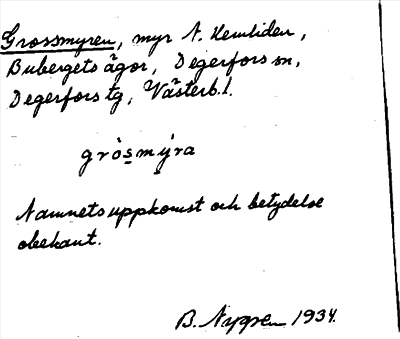 Grossmyren, myr N. Hemliden,
Bubergets ägor, Degerfors sn,
Degerfors tg, Västerb. l.
gròs̲mýra
Namnets uppkomst och betydelse
obekant.
B. Nygren 1934.